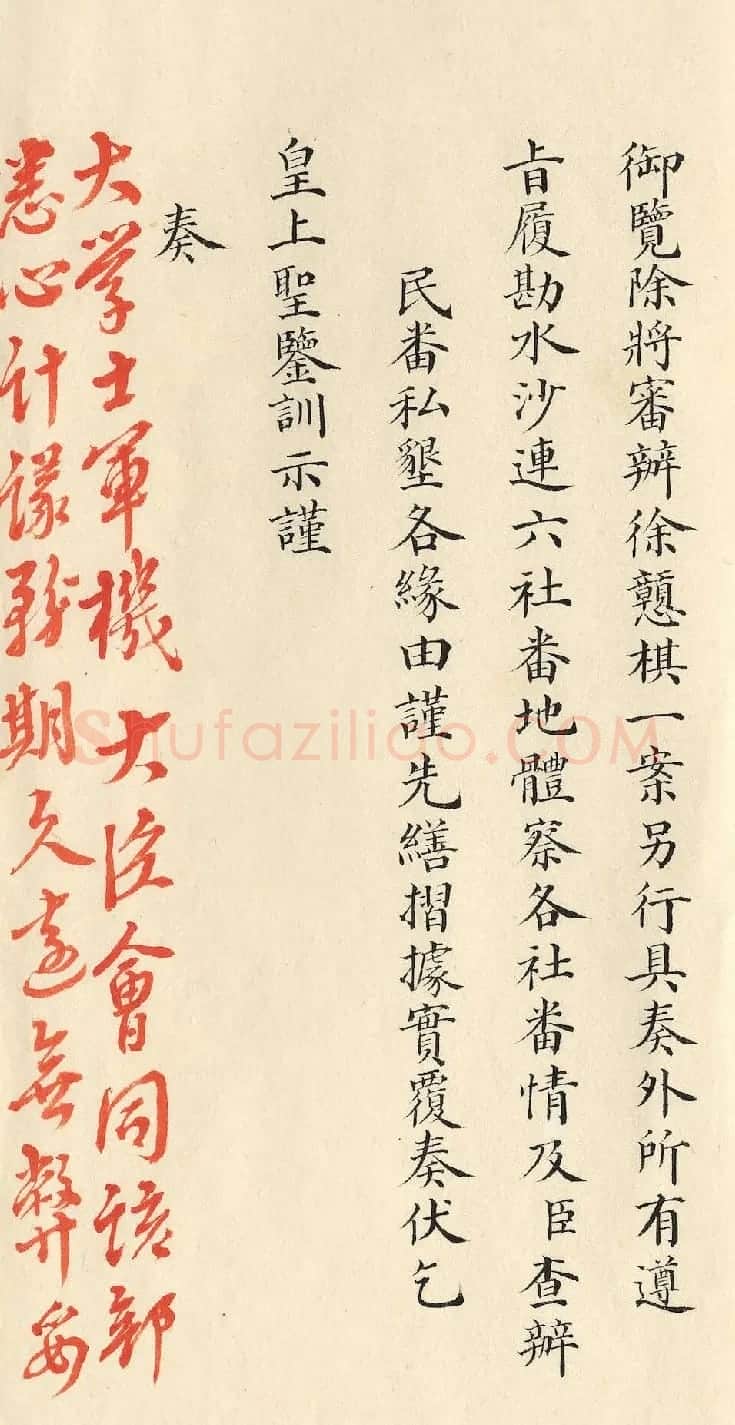 御覽除將審辦徐戇棋一案另行具奏外所有遵
旨履勘水沙連六社番地體察各社番情及臣查辦
民番私墾各緣由謹先繕摺據實覆奏伏乞
皇上聖鑒訓示謹
奏
大学士軍機大臣會同該部
悉心计議務期久遠無弊妥
Shufaziliao.COM